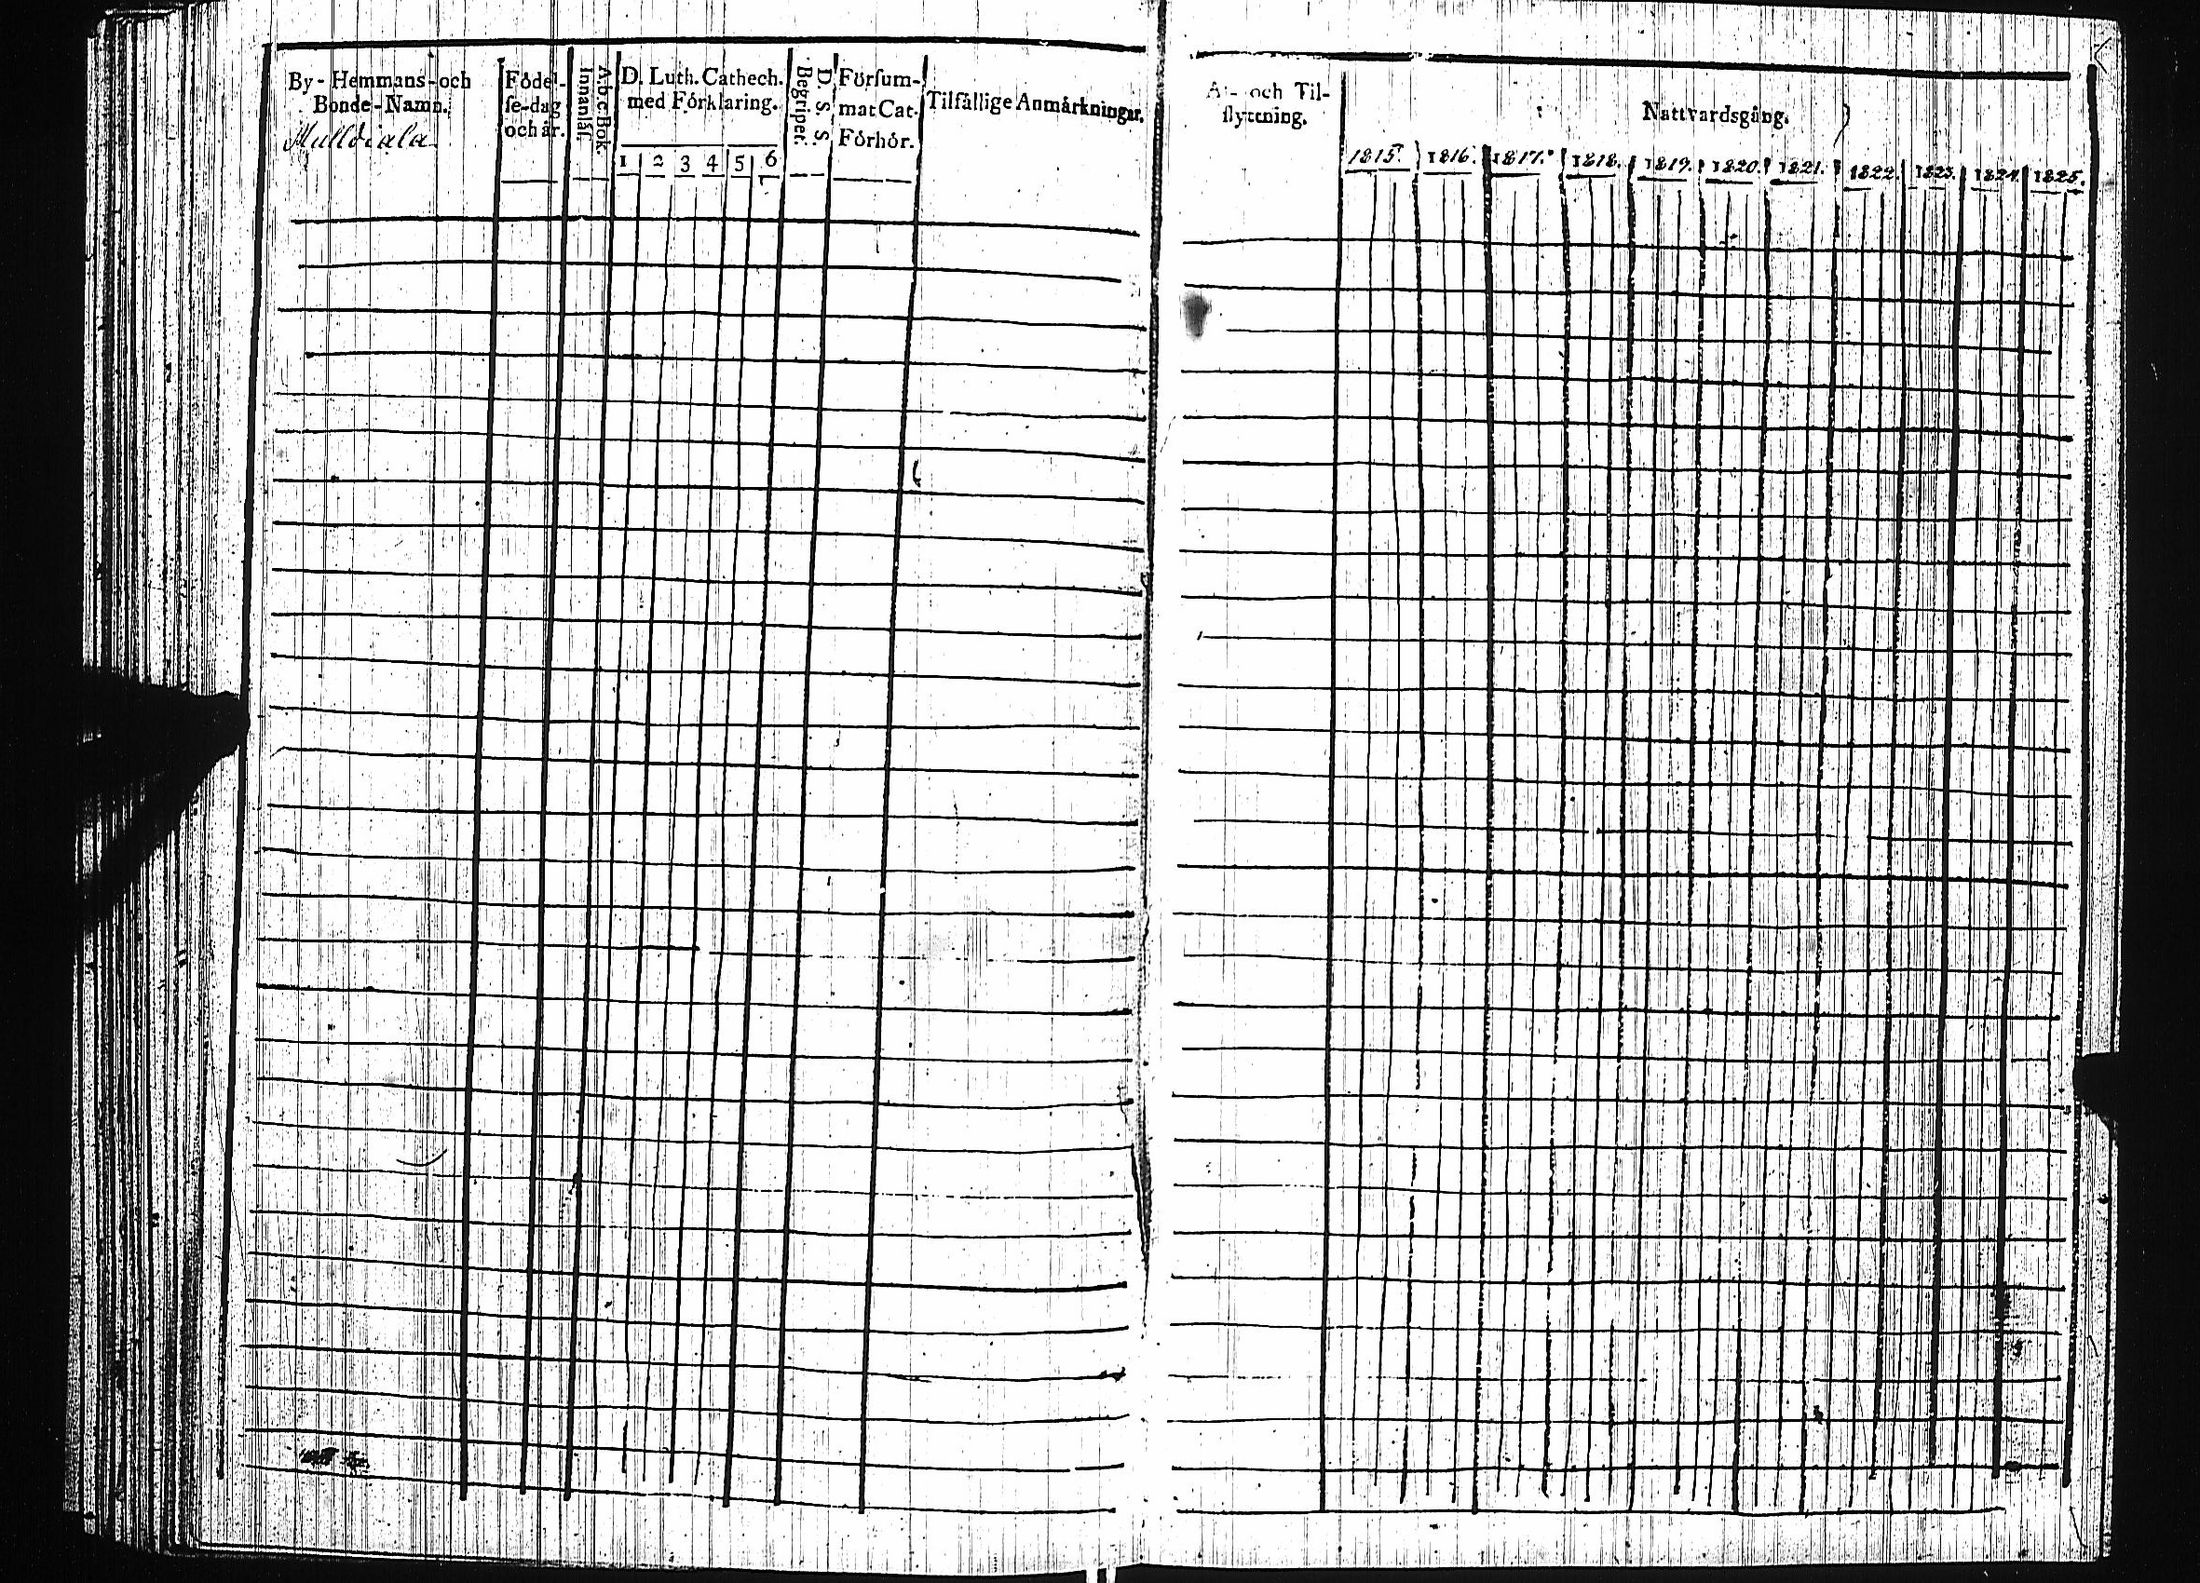 By-Hemmans-och
Bonde-Namn.
Födel-
se-dag
och år.
A.b.c Bok.
Innanläs.
D. Luth. Cathech.
med Förklaring.
1 2 3 4 5 6
D. S. S.
Begripet.
Försum-
mat Cat-
Förhör.
Tilfällige Anmärkningar.
Af- och Til-
flyttning.
Nattvardsgång.
1815. 1816. 1817. 1818. 1819. 1820. 1821. 1822. 1823. 1824. 1825.